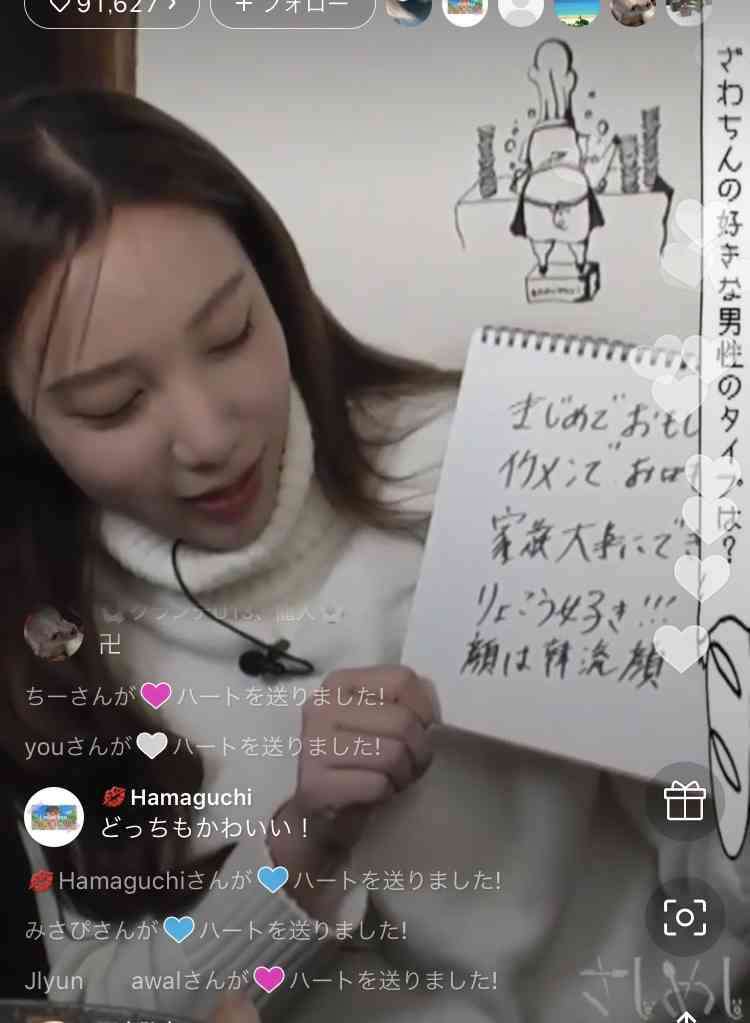 91,627 ›
+ フォロー
ざわちんの好きな男性のタイプは?
まじめでおもし
イケメンで
家族大事にでき
りょこう好き!!!
顔は韓流顔
卍
ちーさんが🩷ハートを送りました!
youさんが🤍ハートを送りました!
💋Hamaguchi
どっちもかわいい!
💋Hamaguchiさんが🩵ハートを送りました!
みさぴさんが🩵ハートを送りました!
Jlyun awalさんが🩷ハートを送りました!
さしめし